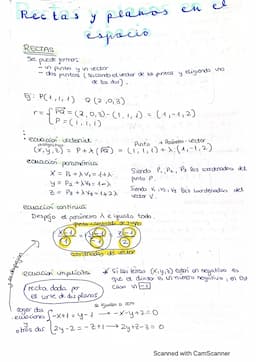 Rectas y planos en el
espacio
RECTAS
Se puede formar:
- un punto y un vector
- dos puntos (buscando el vector de los puntos y eligiendo uno
de los dos).
Ej: P(1,1,1) Q(2,0,3)
r = { PQ = (2,0,3) - (1,1,1) = (1,-1,2)
P = (1,1,1)
ecuación vectorial
Punto + Parámetro · vector
(x,y,z) = P + λ(PQ) = (1,1,1) + λ(1,-1,2)
ecuación paramétrica
x = P₁ + λV₁ = 1+λ
y = P₂ + λV₂ = 1-λ
z = P₃ + λV₃ = 1+2λ
Siendo P₁, P₂, P₃ las coordenadas del
punto P.
Siendo V₁, V₂, V₃ las coordenadas del
vector V.
ecuación continua
Despejo el parámetro λ e igualo todo.
x-1/1 = y-1/-1 = z-1/2
coordenadas del vector
ecuación implícita
recta dada por
es corte de dos planos
* Si las letras (x,y,z) están en negativo es
que el vector es el mismo negativo, en este
caso V(-1)
coger dos
ecuaciones
y
otras dos
-x+1 = y-1 → -x-y+2=0
2y-2 = -z+1 → 2y+z-3=0
Scanned with CamScanner